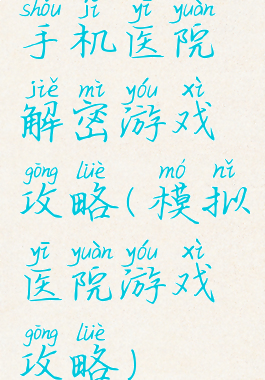 shǒu jī yī yuàn
手机医院
jiě mì yóu xì
解密游戏
gōng lüè mó nǐ
攻略(模拟
yī yuàn yóu xì
医院游戏
gōng lüè
攻略)